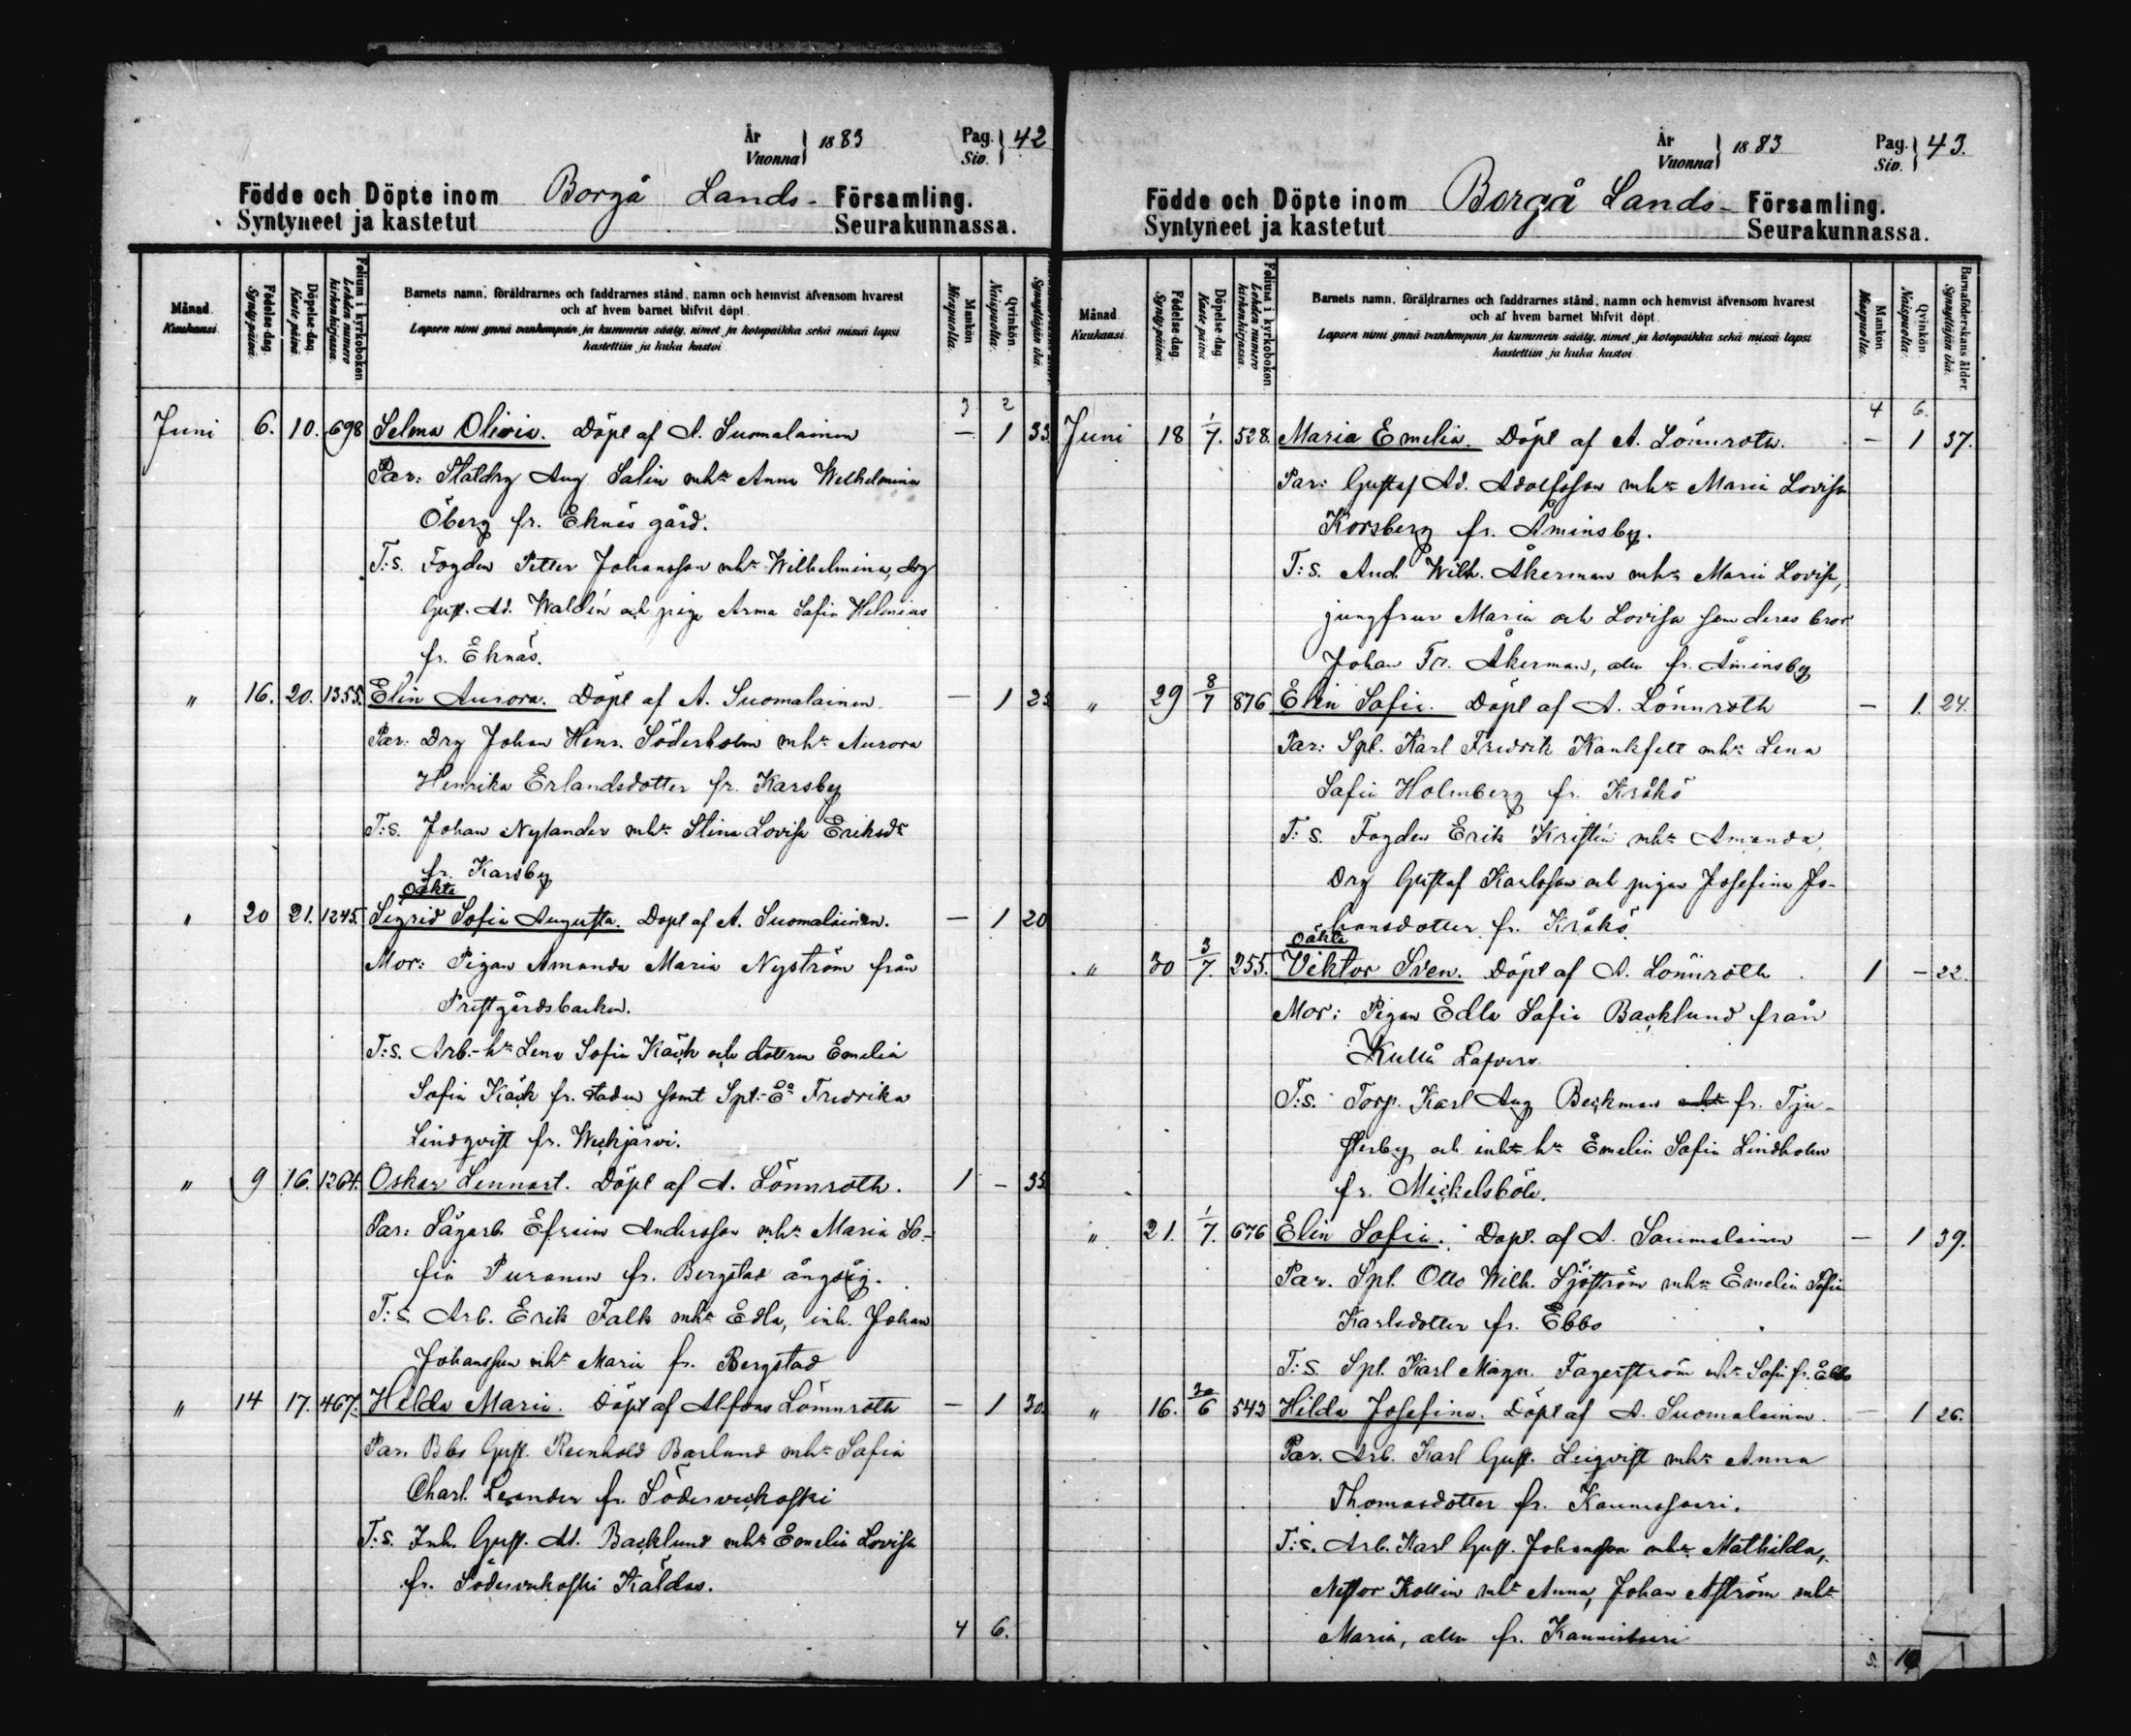 År
Vuonna } 1883
Pag.
Siv. } 42
Födde och Döpte inom Borgå Lands- Församling.
Syntyneet ja kastetut Seurakunnassa.
Månad
Kuukausi.
Födelse-dag.
Synty-päivä.
Döpelse-dag
Kaste-päivä
Folium i kyrkoboken
Lehden numero kirkonkirjassa.
Barnets namn, föräldrarnes och faddrarnes stånd, namn och hemvist äfvensom hvarest
och af hvem barnet blifvit döpt.
Lapsen nimi ynnä vanhempain ja kummein sääty, nimet ja kotopaikka sekä missä lapsi
kastettiin ja kuka kastoi.
Mankön
Miespuolta.
Qvinkön.
Naispuolta.
Synnyttäjän ikä.
3 2
Juni 6. 10. 698 Selma Olivia. Döpt af A. Suomalainen — 1 33
Par: Statdrg Aug Salin mhu Anna Wilhelmina
Öberg fr. Eknäs gård.
T:s. Fogden Petter Johansson mhu Wilhelmina, drg
Gust. Ad. Waldén och piga Anna Sofia Helenius
fr. Eknäs.
" 16. 20. 1355. Elin Aurora. Döpt af A. Suomalainen — 1 23
Par: Drg Johan Henr. Söderholm mhu Aurora
Henrika Erlandsdotter fr. Karsby
T:s. Johan Nylander mhu Stina Lovisa Eriksdr
fr. Karsby
Oäkta
" 20 21. 1245. Sigrid Sofia Augusta. Döpt af A. Suomalainen. — 1 20
Mor: Pigan Amanda Maria Nyström från
Prestgårdsbacken.
T:s. Arb.-hu Lena Sofia Käck och dottren Emelia
Sofia Käck fr. staden samt Spt.-Ea Fredrika
Lindqvist fr. Weckjärvi.
" 9 16. 1264. Oskar Lennart. Döpt af A. Lönnroth. 1 – 35
Par: Sågarb. Efraim Andersson mhu Maria So-
fia Puranen fr. Bergstad ångsåg.
T:s. Arb. Erik Falk mhu Edla, inh. Johan
Johansson mhu Maria fr. Bergstad
" 14 17. 467. Hilda Maria. Döpt af Alfons Lönnroth — 1 30.
Par. Bbs Gust. Reinhold Barlund mhu Sofia
Charl. Leander fr. Södervekoski
T:s. Inh. Gust. Ad. Backlund mhu Emelia Lovisa
fr. Södervekoski Kåldas.
4 6.
År
Vuonna } 1883
Pag.
Siv. } 43.
Födde och Döpte inom Borgå Lands- Församling.
Syntyneet ja kastetut Seurakunnassa.
Månad
Kuukausi.
Födelse-dag.
Synty-päivä.
Döpelse-dag
Kaste-päivä
Folium i kyrkoboken
Lehden numero kirkonkirjassa.
Barnets namn, föräldrarnes och faddrarnes stånd, namn och hemvist äfvensom hvarest
och af hvem barnet blifvit döpt.
Lapsen nimi ynnä vanhempain ja kummein sääty, nimet ja kotopaikka sekä missä lapsi
kastettiin ja kuka kastoi.
Mankön
Miespuolta.
Qvinkön
Naispuolta.
Barnaföderskans ålder
Synnyttäjän ikä.
4 6.
Juni 18 1/7. 528. Maria Emelia. Döpt af A. Lönnroth. — 1 37.
Par: Gustaf Ad. Adolfsson mhu Maria Lovisa
Korsberg fr. Åminsby.
T:s. And. Wilh. Åkerman mhu Maria Lovisa,
jungfrur Maria och Lovisa sam deras bror
Johan Fr. Åkerman, alla fr. Åminsby
" 29 8/7 876 Elin Sofia. Döpt af A. Lönnroth — 1. 24.
Par: Spl. Karl Fredrik Kankfelt mhu Lena
Sofia Holmberg fr. Kråkö
T:s. Fogden Erik Kristén mhu Amanda,
Drg Gustaf Karlsson och pigan Josefina Jo-
hansdotter fr. Kråkö
Oäkta
" 30 3/7. 255. Viktor Sven. Döpt af A. Lönnroth 1 – 22.
Mor: Pigan Edla Sofia Backlund från
Kullå
T:s. Torp. Karl Aug Beckman mhu fr. Tju-
sterby och inh:s hu Emelia Sofia Lindholm
fr. Mickelsböle.
" 21. 1/7. 676 Elin Sofia. Döpt. af A. Suomalainen — 1 39.
Par. Spl. Otto Wilh. Sjöström mhu Emelia Sofia
Karlsdotter fr. Ebbo
T:s. Spl. Karl Magn. Fagerström mhu Sofia fr. Ebbo
" 16. 30/6 543 Hilda Josefina. Döpt af A. Suomalainen. — 1 26.
Par. Arb. Karl Gust. mhu Anna
Thomasdotter fr.
T:s. Arb. Karl Gust. Johansson mhu Mathilda,
Nestor Kollin mhu Anna, Johan Åström mhu
Maria, alla fr.
5. 10